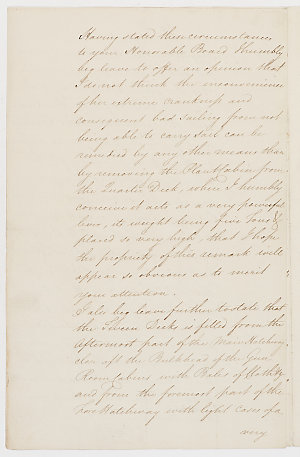 Having stated these circumstances
to your Honorable Board I humbly
beg leave to offer an opinion that
I do not think the inconvenience
of her extreme crankness and
consequent bad sailing from not
being able to carry sail can be
remedied by any other means than
by removing the Plant Cabin from
the Quarter Deck, where I humbly
conceive it acts as a very powerful
lever, its weight being five Tons &
placed so very high, that I hope
the propriety of this remark will
appear so obvious as to merit
your attention.
I also beg leave further to state that
the Tween Decks is filled from the
aftermost part of the Main Hatchway,
clear aft the Bulkhead of the Gun
Room Cabins with Bales of Cloth &c
and from the foremost part of the
Fore Hatchway with light Cases of a
very